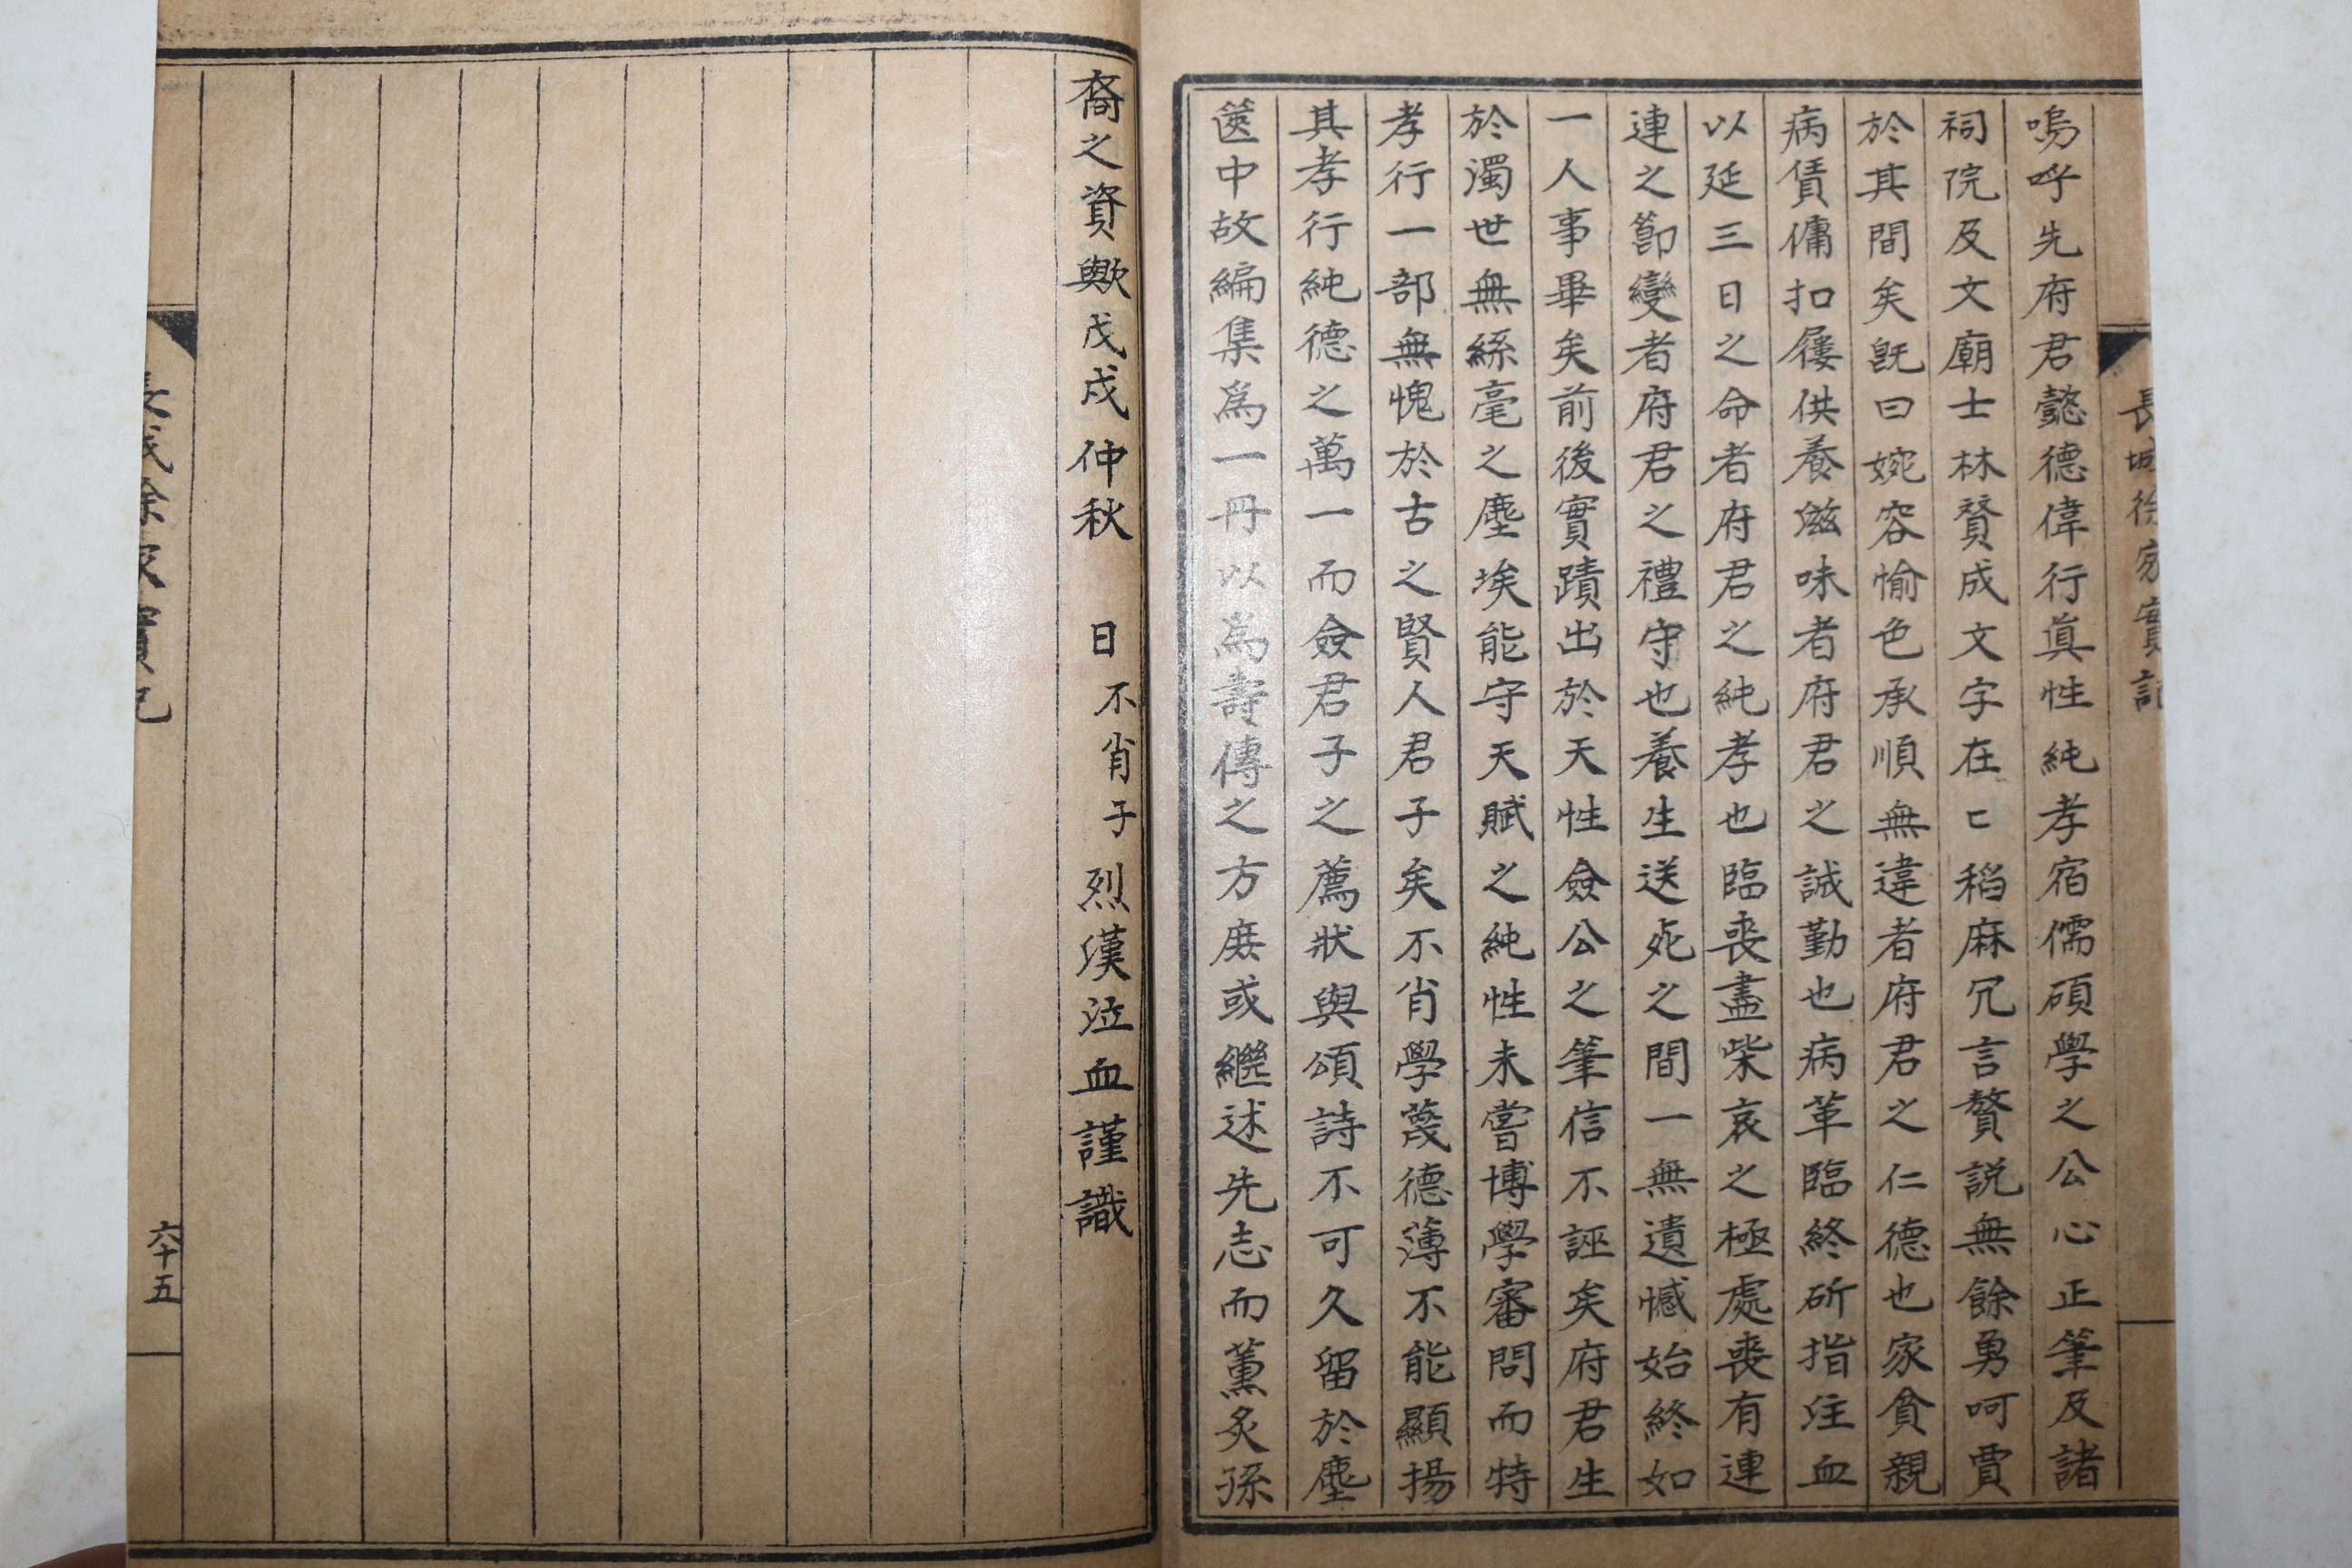 長城徐家實記
嗚呼先府君懿德偉行眞性純孝宿儒碩學之公心正筆及諸
祠院及文廟士林贊成文字在匸稻麻冗言贅説無餘勇呵賈
於其間矣旣曰婉容愉色承順無違者府君之仁德也家貧親
病賃傭扣屨供養滋味者府君之誠勤也病革臨終斫指注血
以延三日之命者府君之純孝也臨喪盡柴哀之極處喪有連
連之節變者府君之禮守也養生送死之間一無遺憾始終如
一人事畢矣前後實蹟出於天性僉公之筆信不誣矣府君生
於濁世無絲毫之塵埃能守天賦之純性未嘗博學審問而特
孝行一部無愧於古之賢人君子矣不肖學蔑德薄不能顯揚
其孝行純德之萬一而僉君子之薦狀與頌詩不可久留於塵
篋中故編集爲一冊以爲壽傳之方庶或繼述先志而薰炙孫
裔之資歟戊戌仲秋 日不肖子烈漢泣血謹識
六十五